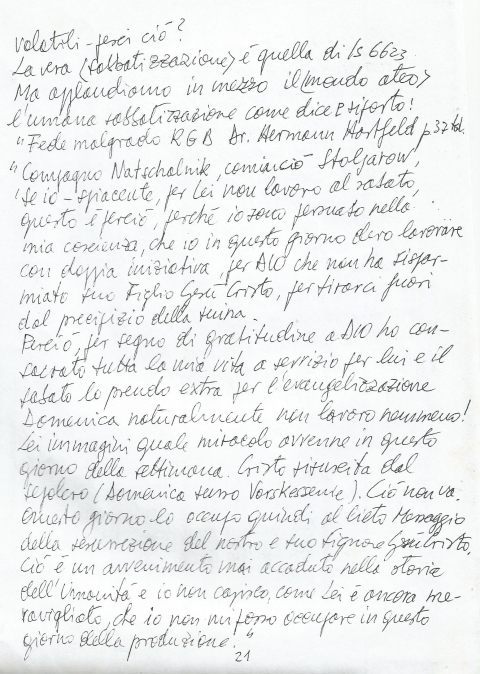 volatili - perciò ciò?
La vera (sabbatizzazione) è quella di Is 6623
Ma applaudiamo in mezzo il (mondo ateo)
l'umana sabbatizzazione come dice e riporto!
"Fede malgrado KGB Dr. Hermann Hartfeld p 32 td.
"Compagno Natschalnik, cominciò Stoljarow,
se io - spiacente, per Lei non lavoro al sabato,
questo è perciò, perché io sono persuaso nella
mia coscienza, che io in questo giorno devo lavorare
con doppia iniziativa, per DIO che non ha rispar-
miato suo Figlio Gesù Cristo, per tirarci fuori
dal precipizio della ruina.
Perciò, per segno di gratitudine a DIO ho con-
sacrato tutta la mia vita a servizio per lui e il
sabato lo prendo extra per l'evangelizzazione
Domenica naturalmente non lavoro nemmeno!
Lei immagini quale miracolo avvenne in questo
giorno della settimana. Cristo risuscita dal
sepolcro (Domenica russo Voskessenie). Ciò non va.
Questo giorno lo occupo quindi al lieto Messaggio
della resurrezione del nostro e suo Signore Gesù Cristo,
Ciò è un avvenimento mai accaduto nella storia
dell'Umanità e io non capisco, come Lei è ancora me-
ravigliato, che io non mi posso occupare in questo
giorno della produzione."
21